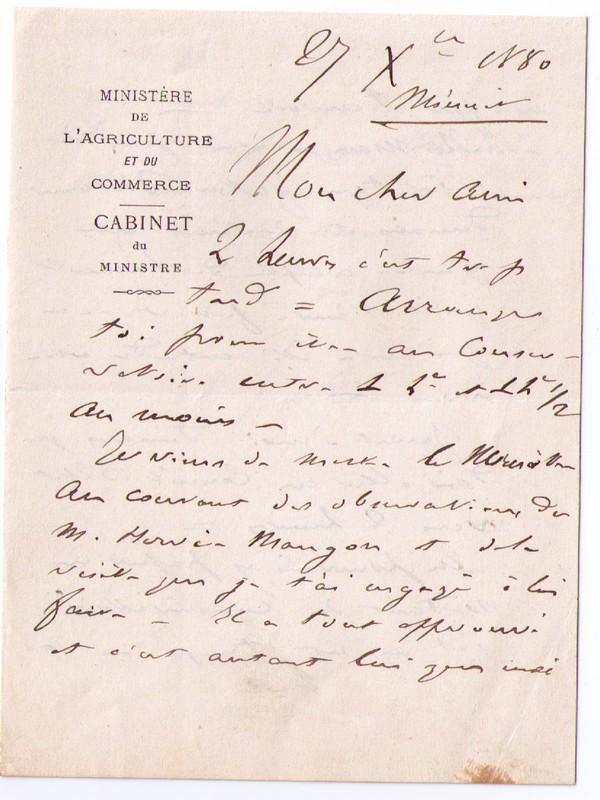 27 Xbre 1880
MINISTÈRE
DE
L'AGRICULTURE
ET DU
COMMERCE
CABINET
du
MINISTRE
Mon cher ami
2 heures c'est trop
tard = Arranges
toi pour être au Conser-
vatoire entre 1 h et 1 h 1/2
au moins -
Je viens de mettre le Ministre
au courant des observations de
M. Hervé Mangon et de la
visite que je t'ai engagé à lui
faire - Il a tout approuvé
et c'est autant lui que moi